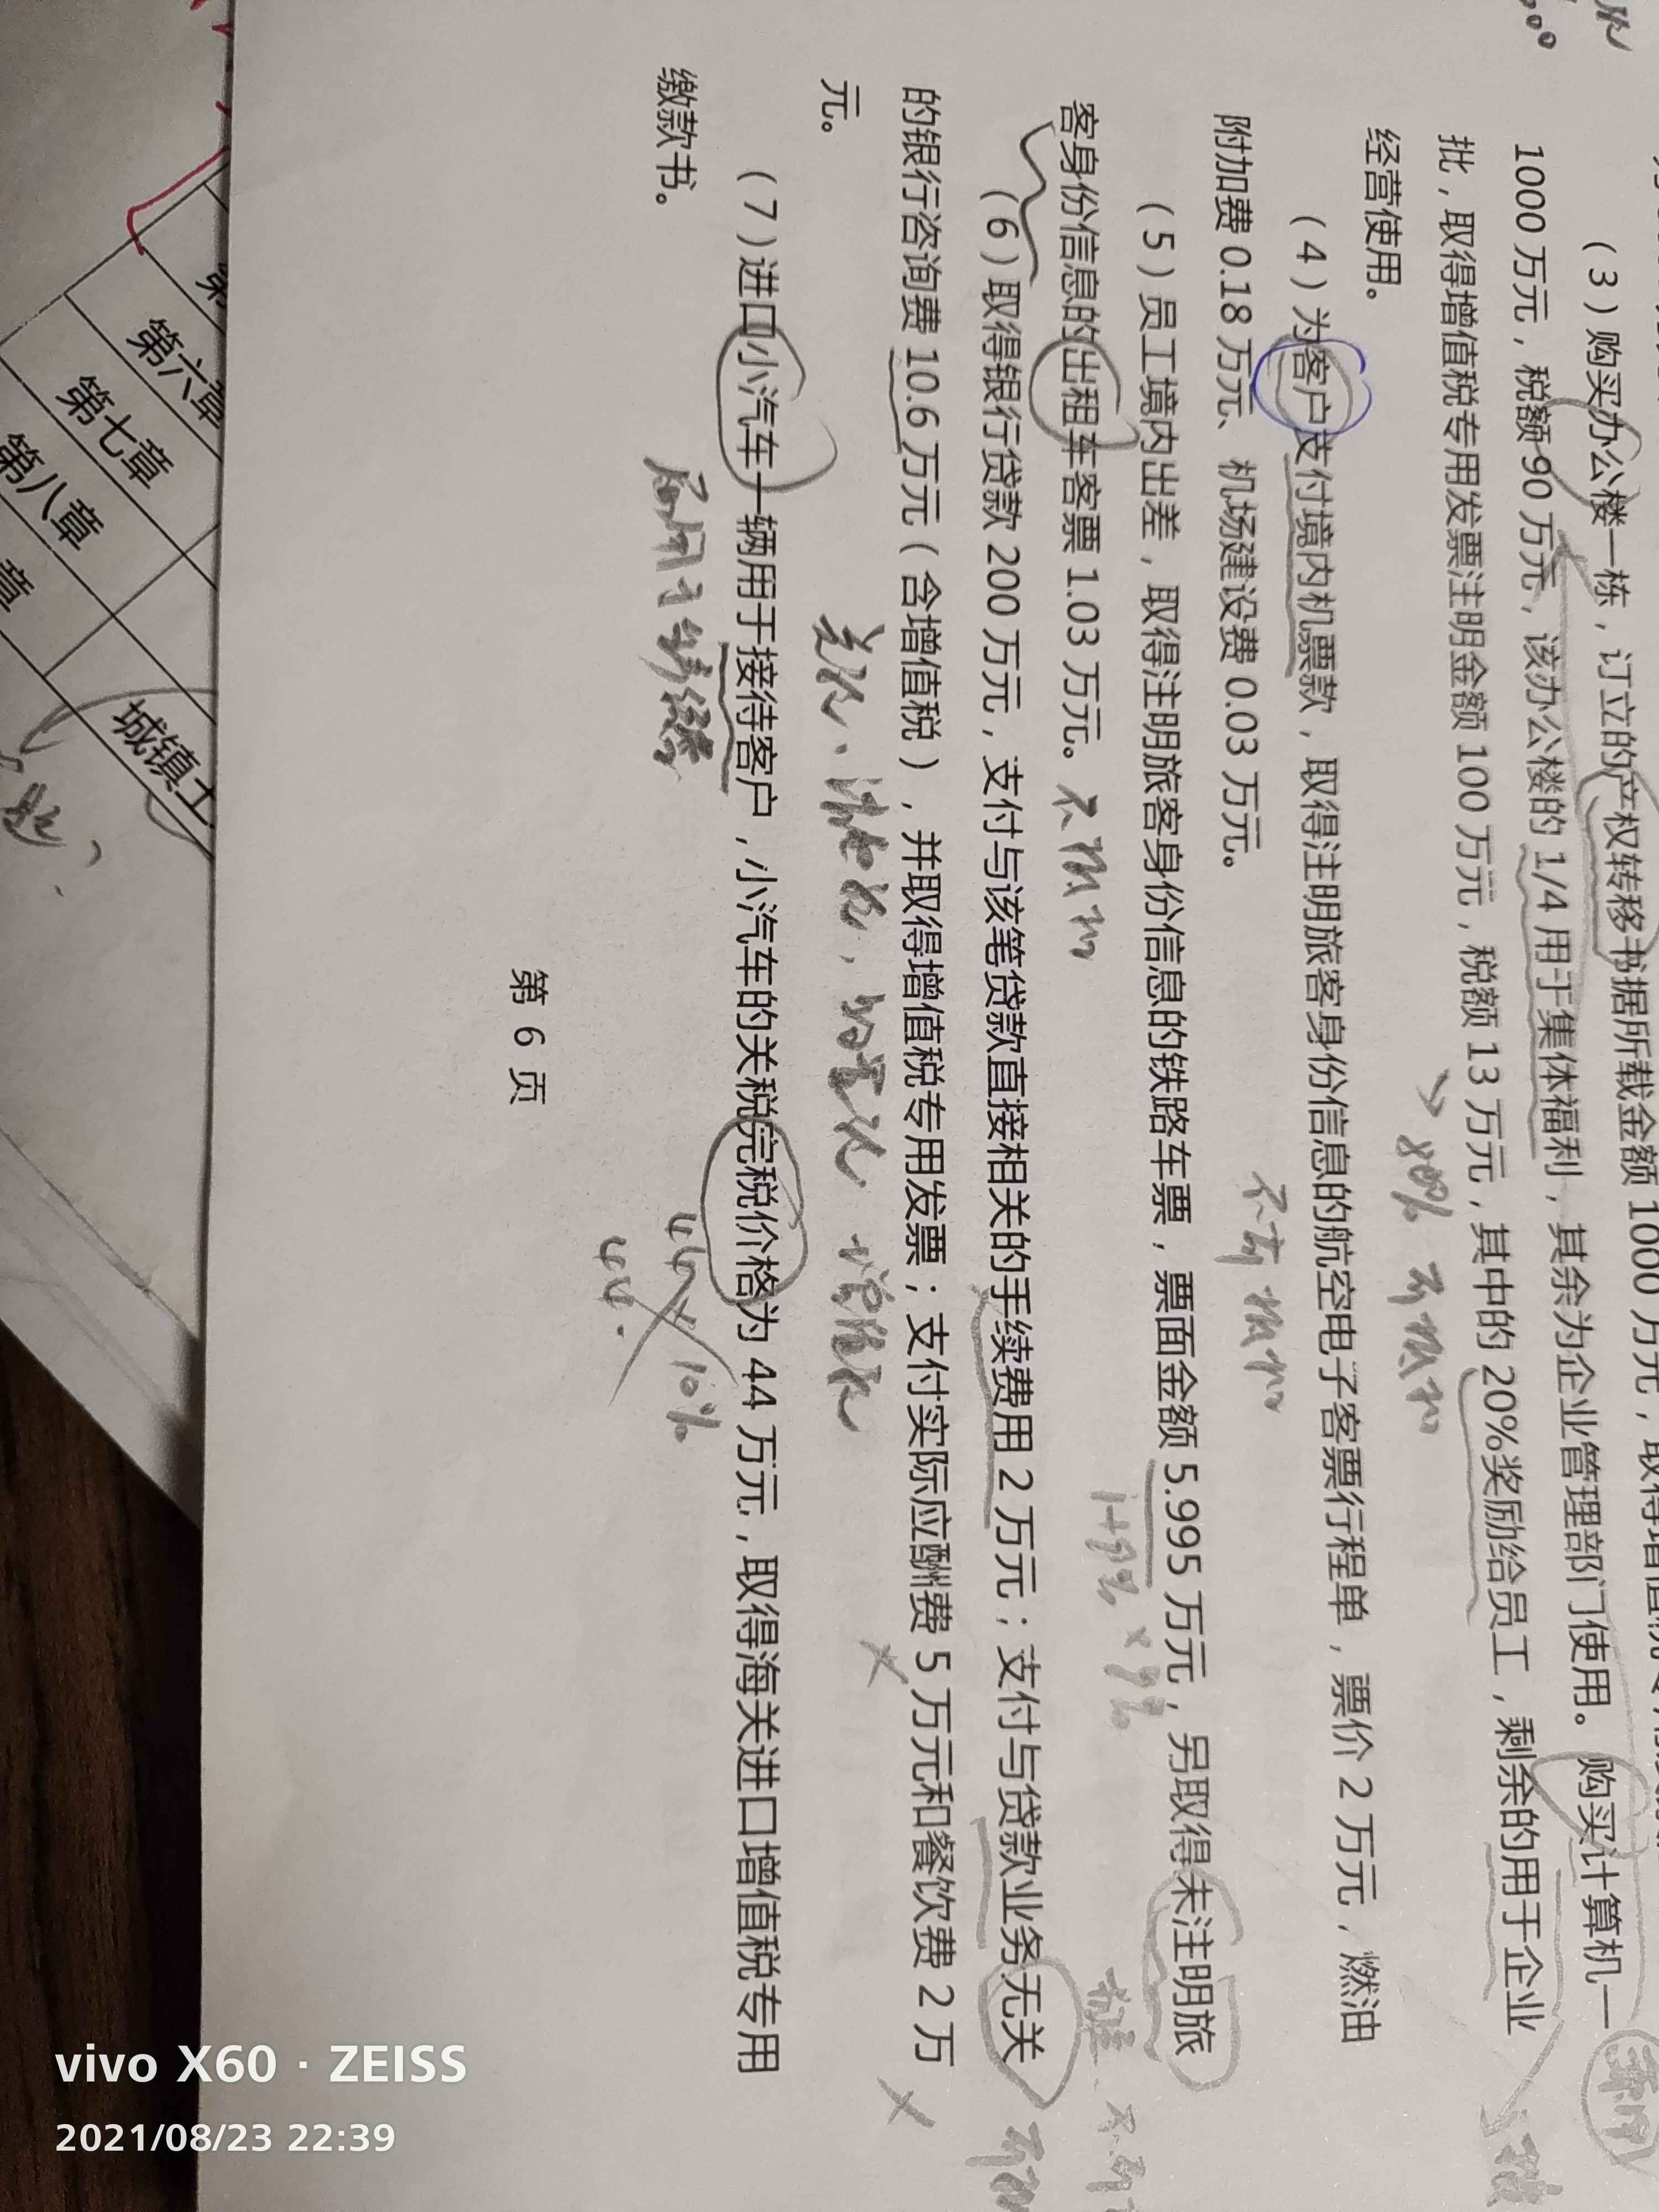 （3）购买办公楼一栋，订立的产权转移书据所载金额1000万元，取得增值税专用发
1000万元，税额90万元，该办公楼的1/4用于集体福利，其余为企业管理部门使用。购买计算机一
批，取得增值税专用发票注明金额100万元，税额13万元，其中的20%奖励给员工，剩余的用于企业
经营使用。
80% 可
（4）为客户支付境内机票款，取得注明旅客身份信息的航空电子客票行程单，票价2万元，燃油
附加费0.18万元、机场建设费0.03万元。
不可
（5）员工境内出差，取得注明旅客身份信息的铁路车票，票面金额5.995万元，另取得未注明旅
客身份信息的出租车客票1.03万元。
不
1+9% × 9%
（6）取得银行贷款200万元，支付与该笔贷款直接相关的手续费用2万元；支付与贷款业务无关
的银行咨询费10.6万元（含增值税），并取得增值税专用发票；支付实际应酬费5万元和餐饮费2万
元。
（7）进口小汽车一辆用于接待客户，小汽车的关税完税价格为44万元，取得海关进口增值税专用
缴款书。
44×10%
44.
第 6 页
第六章
第七章
第八章
章
城镇土
vivo X60 · ZEISS
2021/08/23 22:39